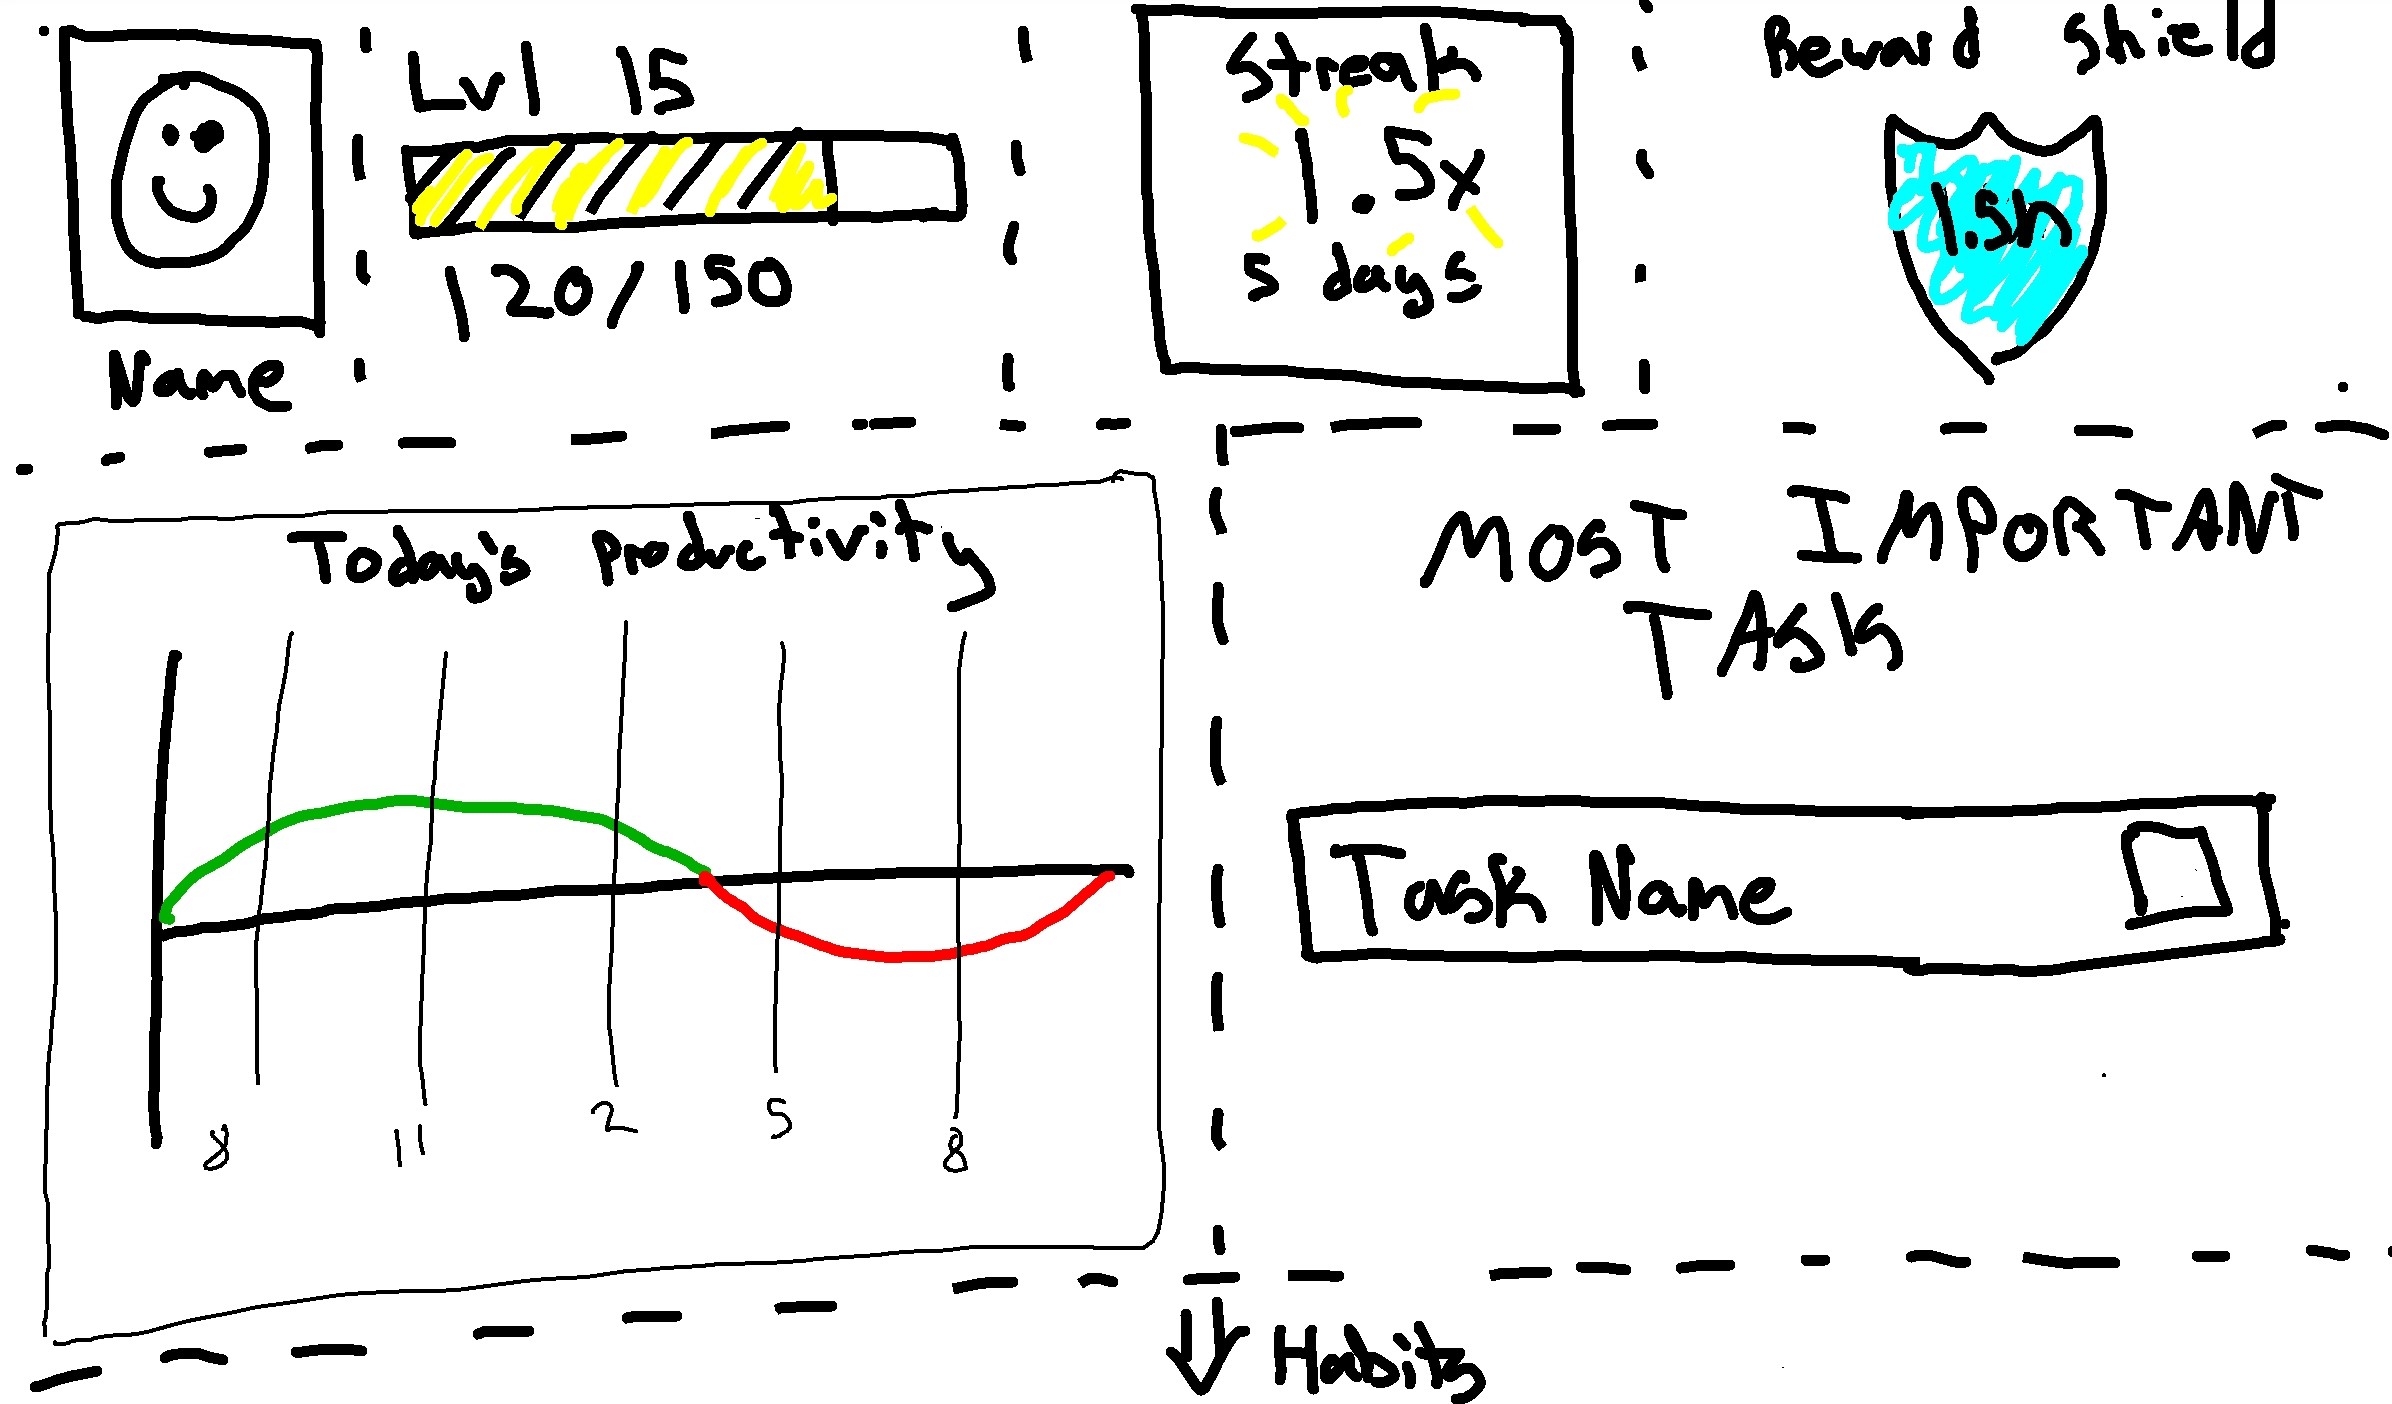 Lvl 15
120/150
Name
Streak
1.5x
5 days
Reward Shield
1.5h
Today's Productivity
8 11 2 5 8
MOST IMPORTANT
TASK
Task Name
Habits